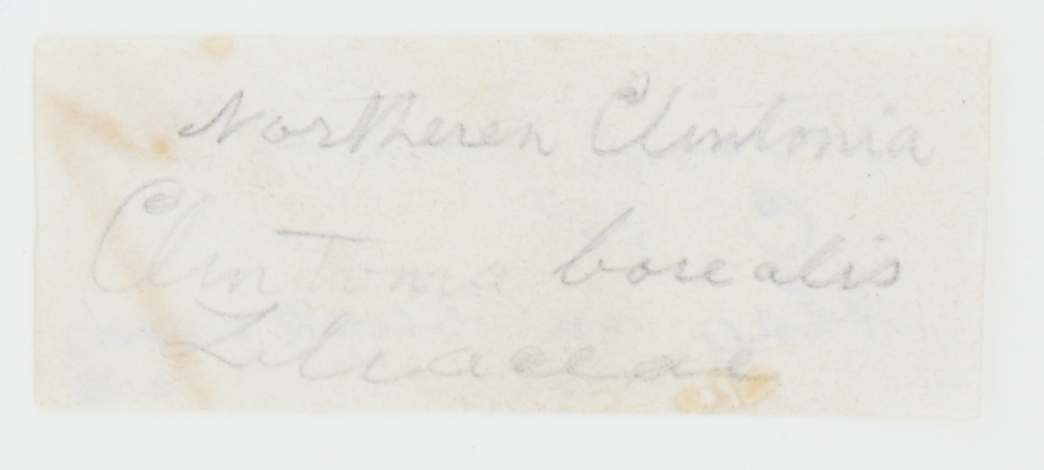 Northeren Clintonia
Clintonia borealis
Liliaceae